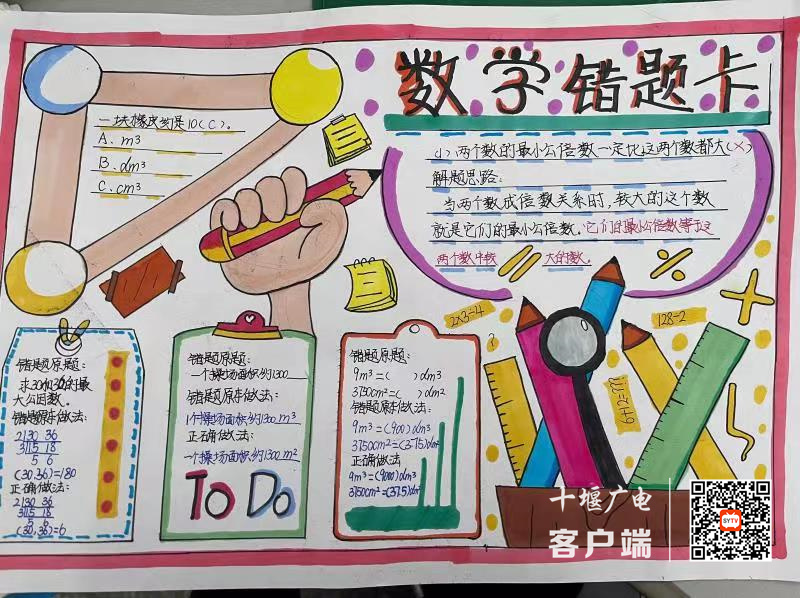 数学错题卡
一块橡皮约是10(C)。
A、m³
B、dm³
C、cm³
(1)两个数的最小公倍数一定比这两个数都大(×)
解题思路:
当两个数成倍数关系时,较大的这个数
就是它们的最小公倍数,它们的最小公倍数等于这
两个数中较大的数。
2×3÷4
128÷2
6+12=???
错题原题:
求30和36的最
大公因数。
错题原作做法:
2|30 36
3|15 18
5 6
(30,36)=180
正确做法:
2|30 36
3|15 18
5 6
(30,36)=6
错题原题:
一个操场面积约1300
错题原作做法:
1个操场面积约1300m³
正确做法:
一个操场面积约1300m²
To Do
错题原题:
9m³=( )dm³
3750cm²=( )dm²
错题原作做法:
9m³=(900)dm³
3750cm²=(375)dm²
正确做法
9m³=(9000)dm³
3750cm²=(37.5)dm²
十堰广电
客户端
SYTV